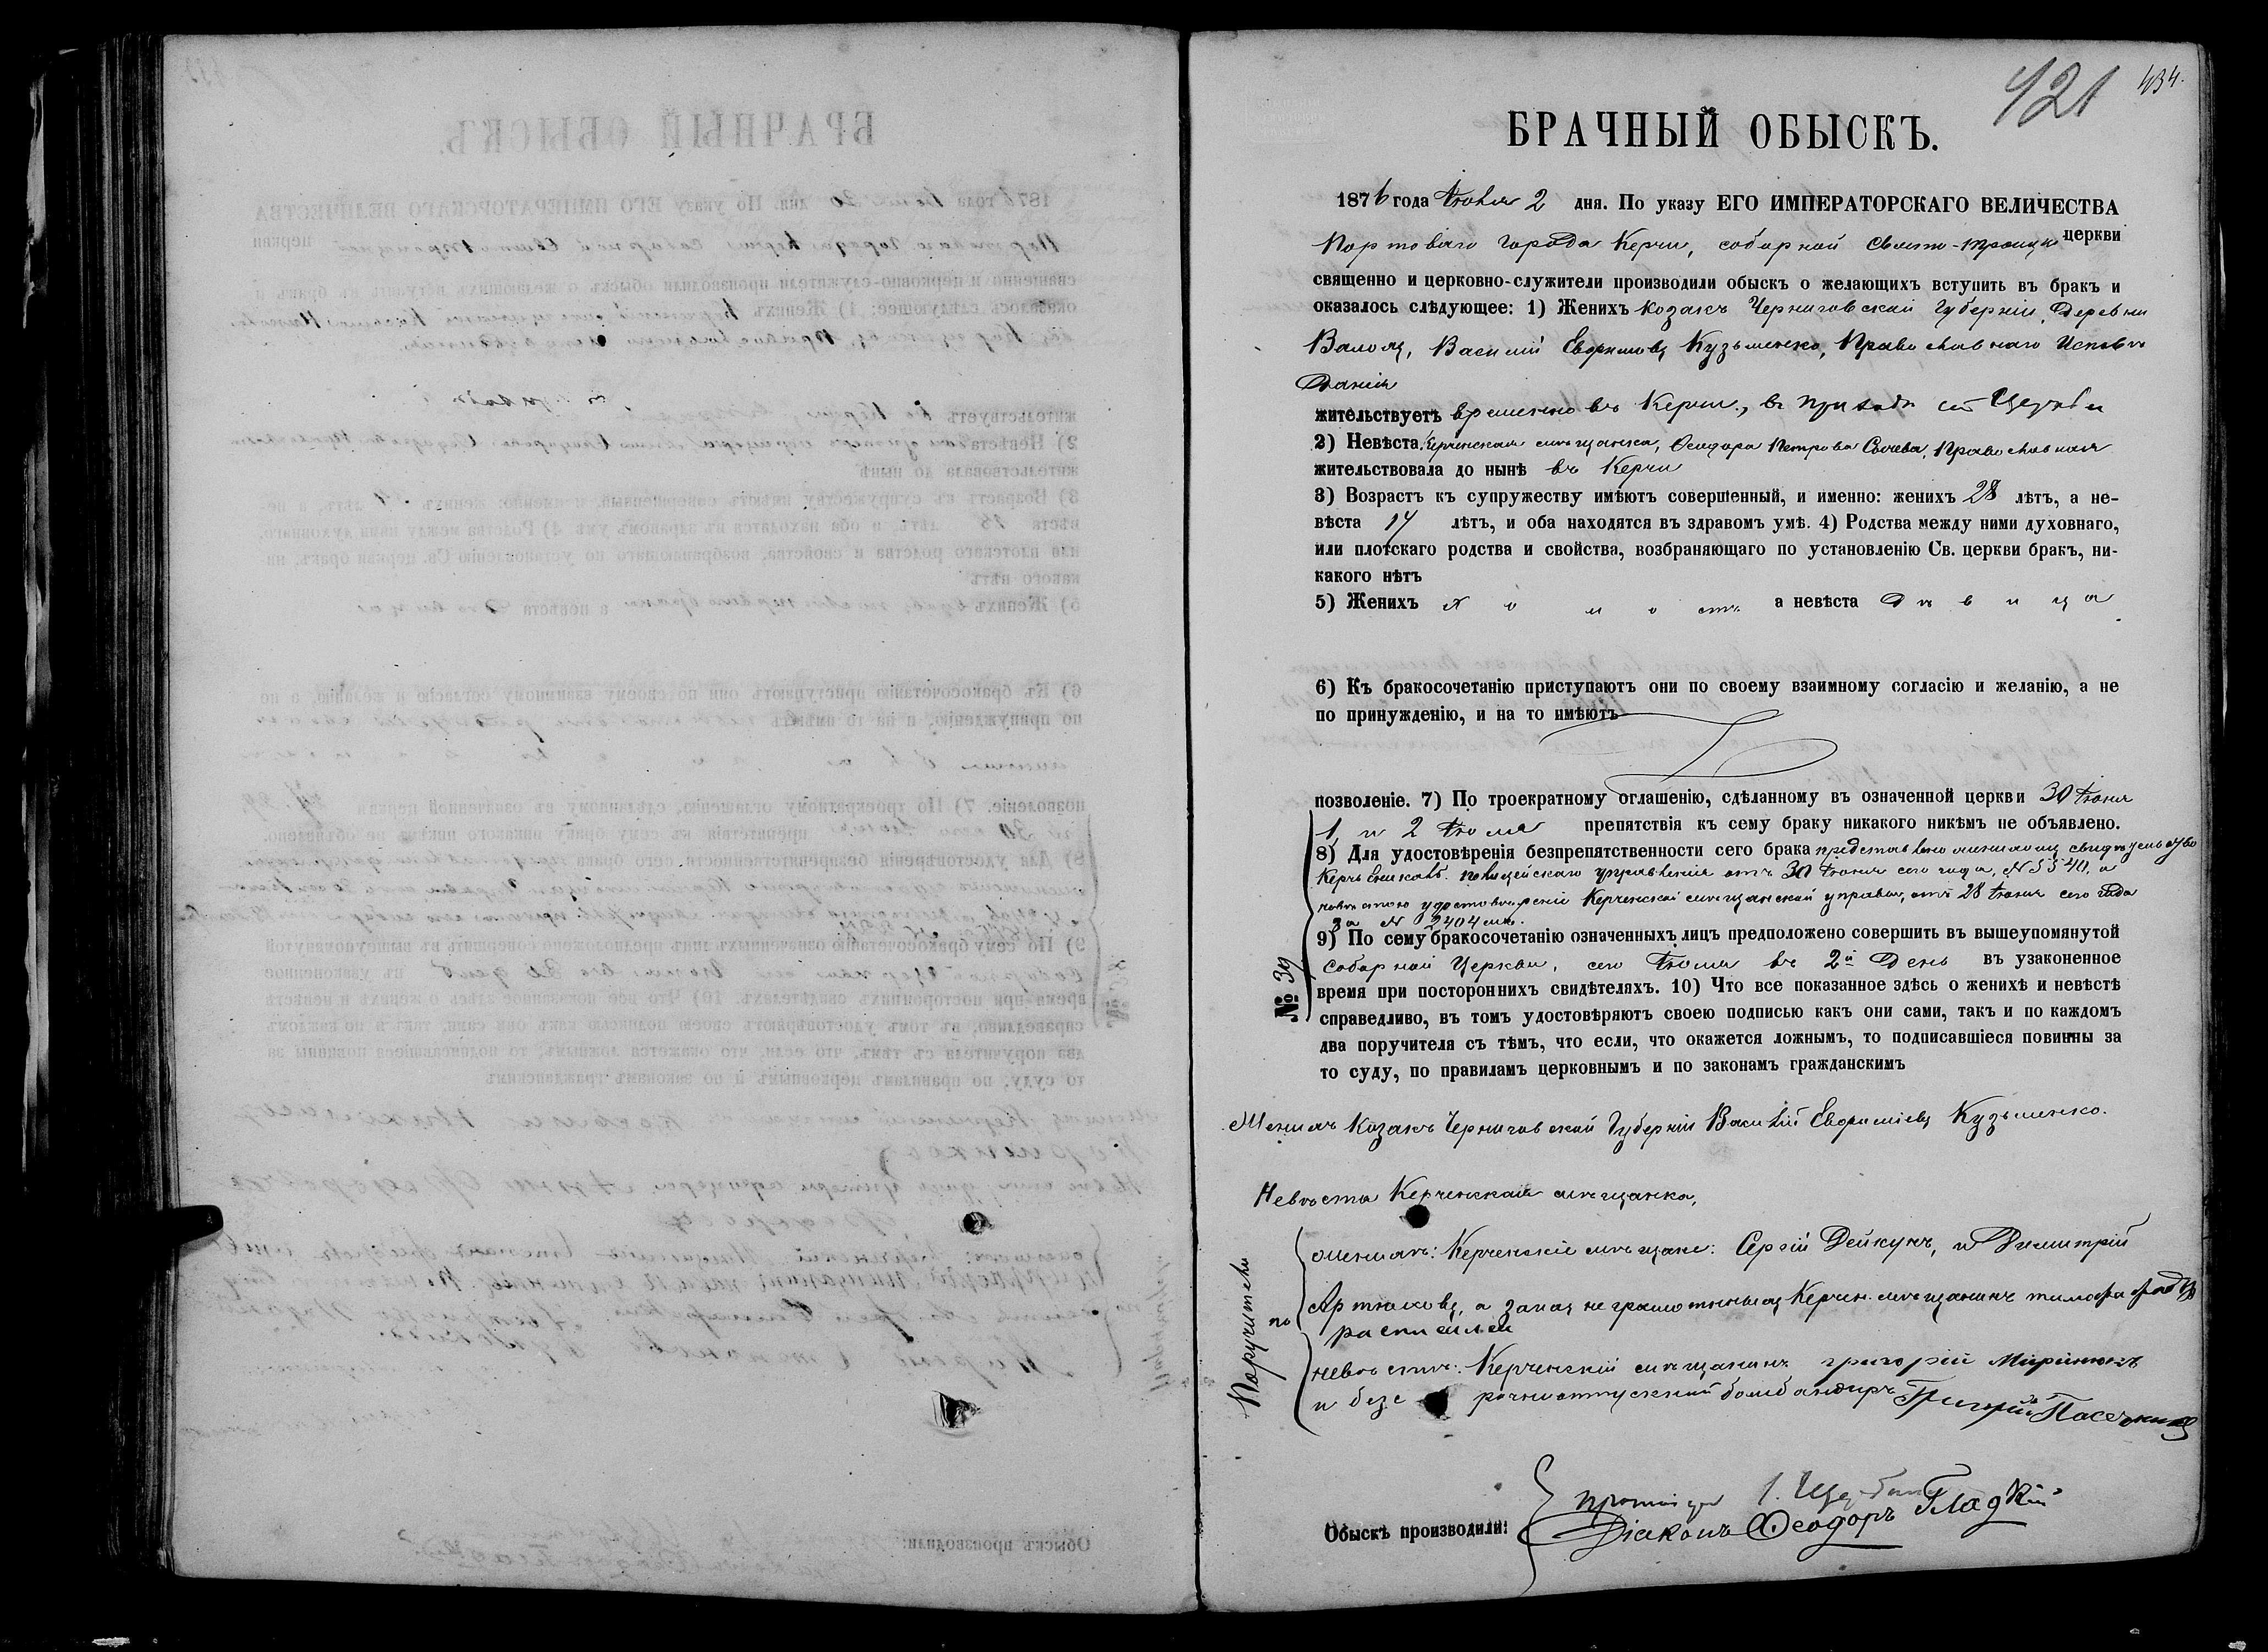 421 434.
БРАЧНЫЙ ОБЫСКЪ.
1876 года Іюля 2 дня. По указу ЕГО ИМПЕРАТОРСКАГО ВЕЛИЧЕСТВА
Портоваго города Керчи, соборной Свято-Троицк церкви
священно и церковно-служители производили обыскъ о желающихъ вступить въ бракъ и
оказалось слѣдующее: 1) Женихъ Козакъ Черниговской Губерніи, Деревни
Василій Кузьменко, Православнаго Исповѣ
данія
жительствуетъ временно въ Керчи, въ приходѣ сей Церкви
2) Невѣста Керченская мѣщанка, Петрова Сычева, Православная
жительствовала до нынѣ въ Керчи
3) Возрастъ къ супружеству имѣютъ совершенный, и именно: женихъ 28 лѣтъ, а не-
вѣста лѣтъ, и оба находятся въ здравомъ умѣ. 4) Родства между ними духовнаго,
или плотскаго родства и свойства, возбраняющаго по установленію Св. церкви бракъ, ни-
какого нѣтъ
5) Женихъ холостъ а невѣста Дѣвица
6) Къ бракосочетанію приступаютъ они по своему взаимному согласію и желанію, а не
по принужденію, и на то имѣютъ
позволеніе. 7) По троекратному оглашенію, сдѣланному въ означенной церкви 30 Іюня
1, и 2 Іюля препятствія къ сему браку никакого никѣмъ не объявлено.
8) Для удостовѣренія безпрепятственности сего брака представлено женихомъ свидѣтельство
Керчь Еникальс. полицейскаго управленія отъ 30 Іюня сего года, № 5540, а
невѣстою удостовѣреніе Керченской мѣщанской управы, отъ 28 Іюня сего года
за № 2404мъ.
9) По сему бракосочетанію означенныхъ лицъ предположено совершить въ вышеупомянутой
соборной Церкви, сего Іюля въ 2й День въ узаконенное
№ 39
время при постороннихъ свидѣтеляхъ. 10) Что все показанное здѣсь о женихѣ и невѣстѣ
справедливо, въ томъ удостовѣряютъ своею подписью какъ они сами, такъ и по каждомъ
два поручителя съ тѣмъ, что если, что окажется ложнымъ, то подписавшіеся повинны за
то суду, по правиламъ церковнымъ и по законамъ гражданскимъ
Женихъ Козакъ Черниговской Губерніи Василій Кузьменко.
Невѣста Керченская мѣщанка,
Поручители по
женихѣ: Керченскіе мѣщане: Сергій Дейкунъ, и Димитрій
Артюховъ, а за нихъ неграмотныхъ Керчен. мѣщанинъ
невѣстѣ: Керченскій мѣщанинъ григорій
и безсрочноотпускной бомбандиръ Григорій
Обыскъ производили:
протоіерей І.
Діаконъ Ѳеодоръ Гладкій